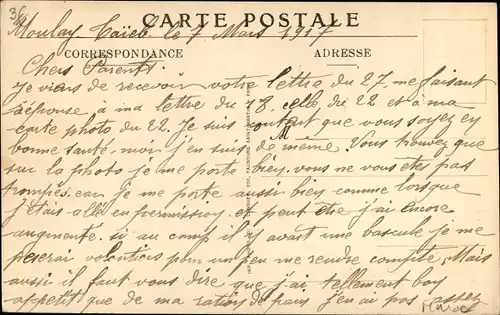 35
CARTE POSTALE
Moulay Taïeb le 7 Mars 1917
CORRESPONDANCE
ADRESSE
Chers Parents
Je viens de recevoir votre lettre du 27. me faisant
réponse à ma lettre du 18. celle du 22 et à ma
carte photo du 22. Je suis content que vous soyez en
bonne santé. moi j'en suis de meme. Vous trouvez que
sur la photo je me porte bien. vous ne vous etes pas
trompés. car je me porte aussi bien comme lorsque
j'étais allé en permission et peut être j'ai encore
augmenté. si au camp il y avait une bascule je me
peserai volontiers pour un peu me rendre compte. Mais
aussi il faut vous dire que j'ai tellement bon
appetit que de ma ration de pain j'en ai pas assez
Maroc